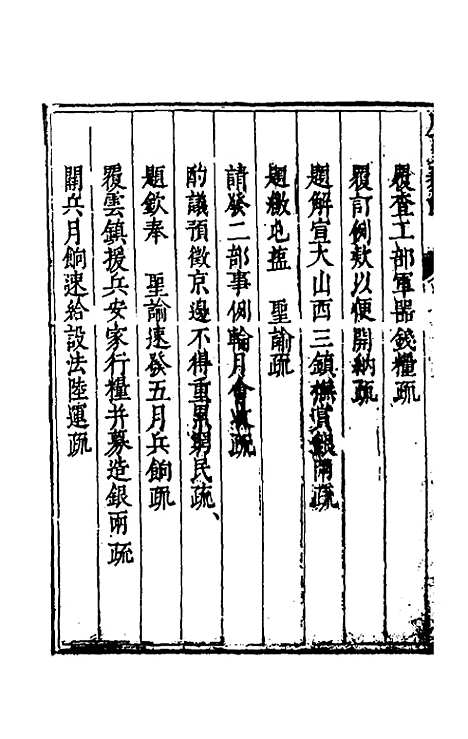 覆查工部軍器錢糧疏
覆訂例款以便開納疏
題解宣大山西三鎮撫賞銀兩疏
題繳地畝 聖諭疏
請發二部事例輪月會收疏
酌議預徵京邊不得重累窮民疏
題欽奉 聖諭速發五月兵餉疏
覆雲鎮援兵安家行糧并募造銀兩疏
關兵月餉速給設法陸運疏